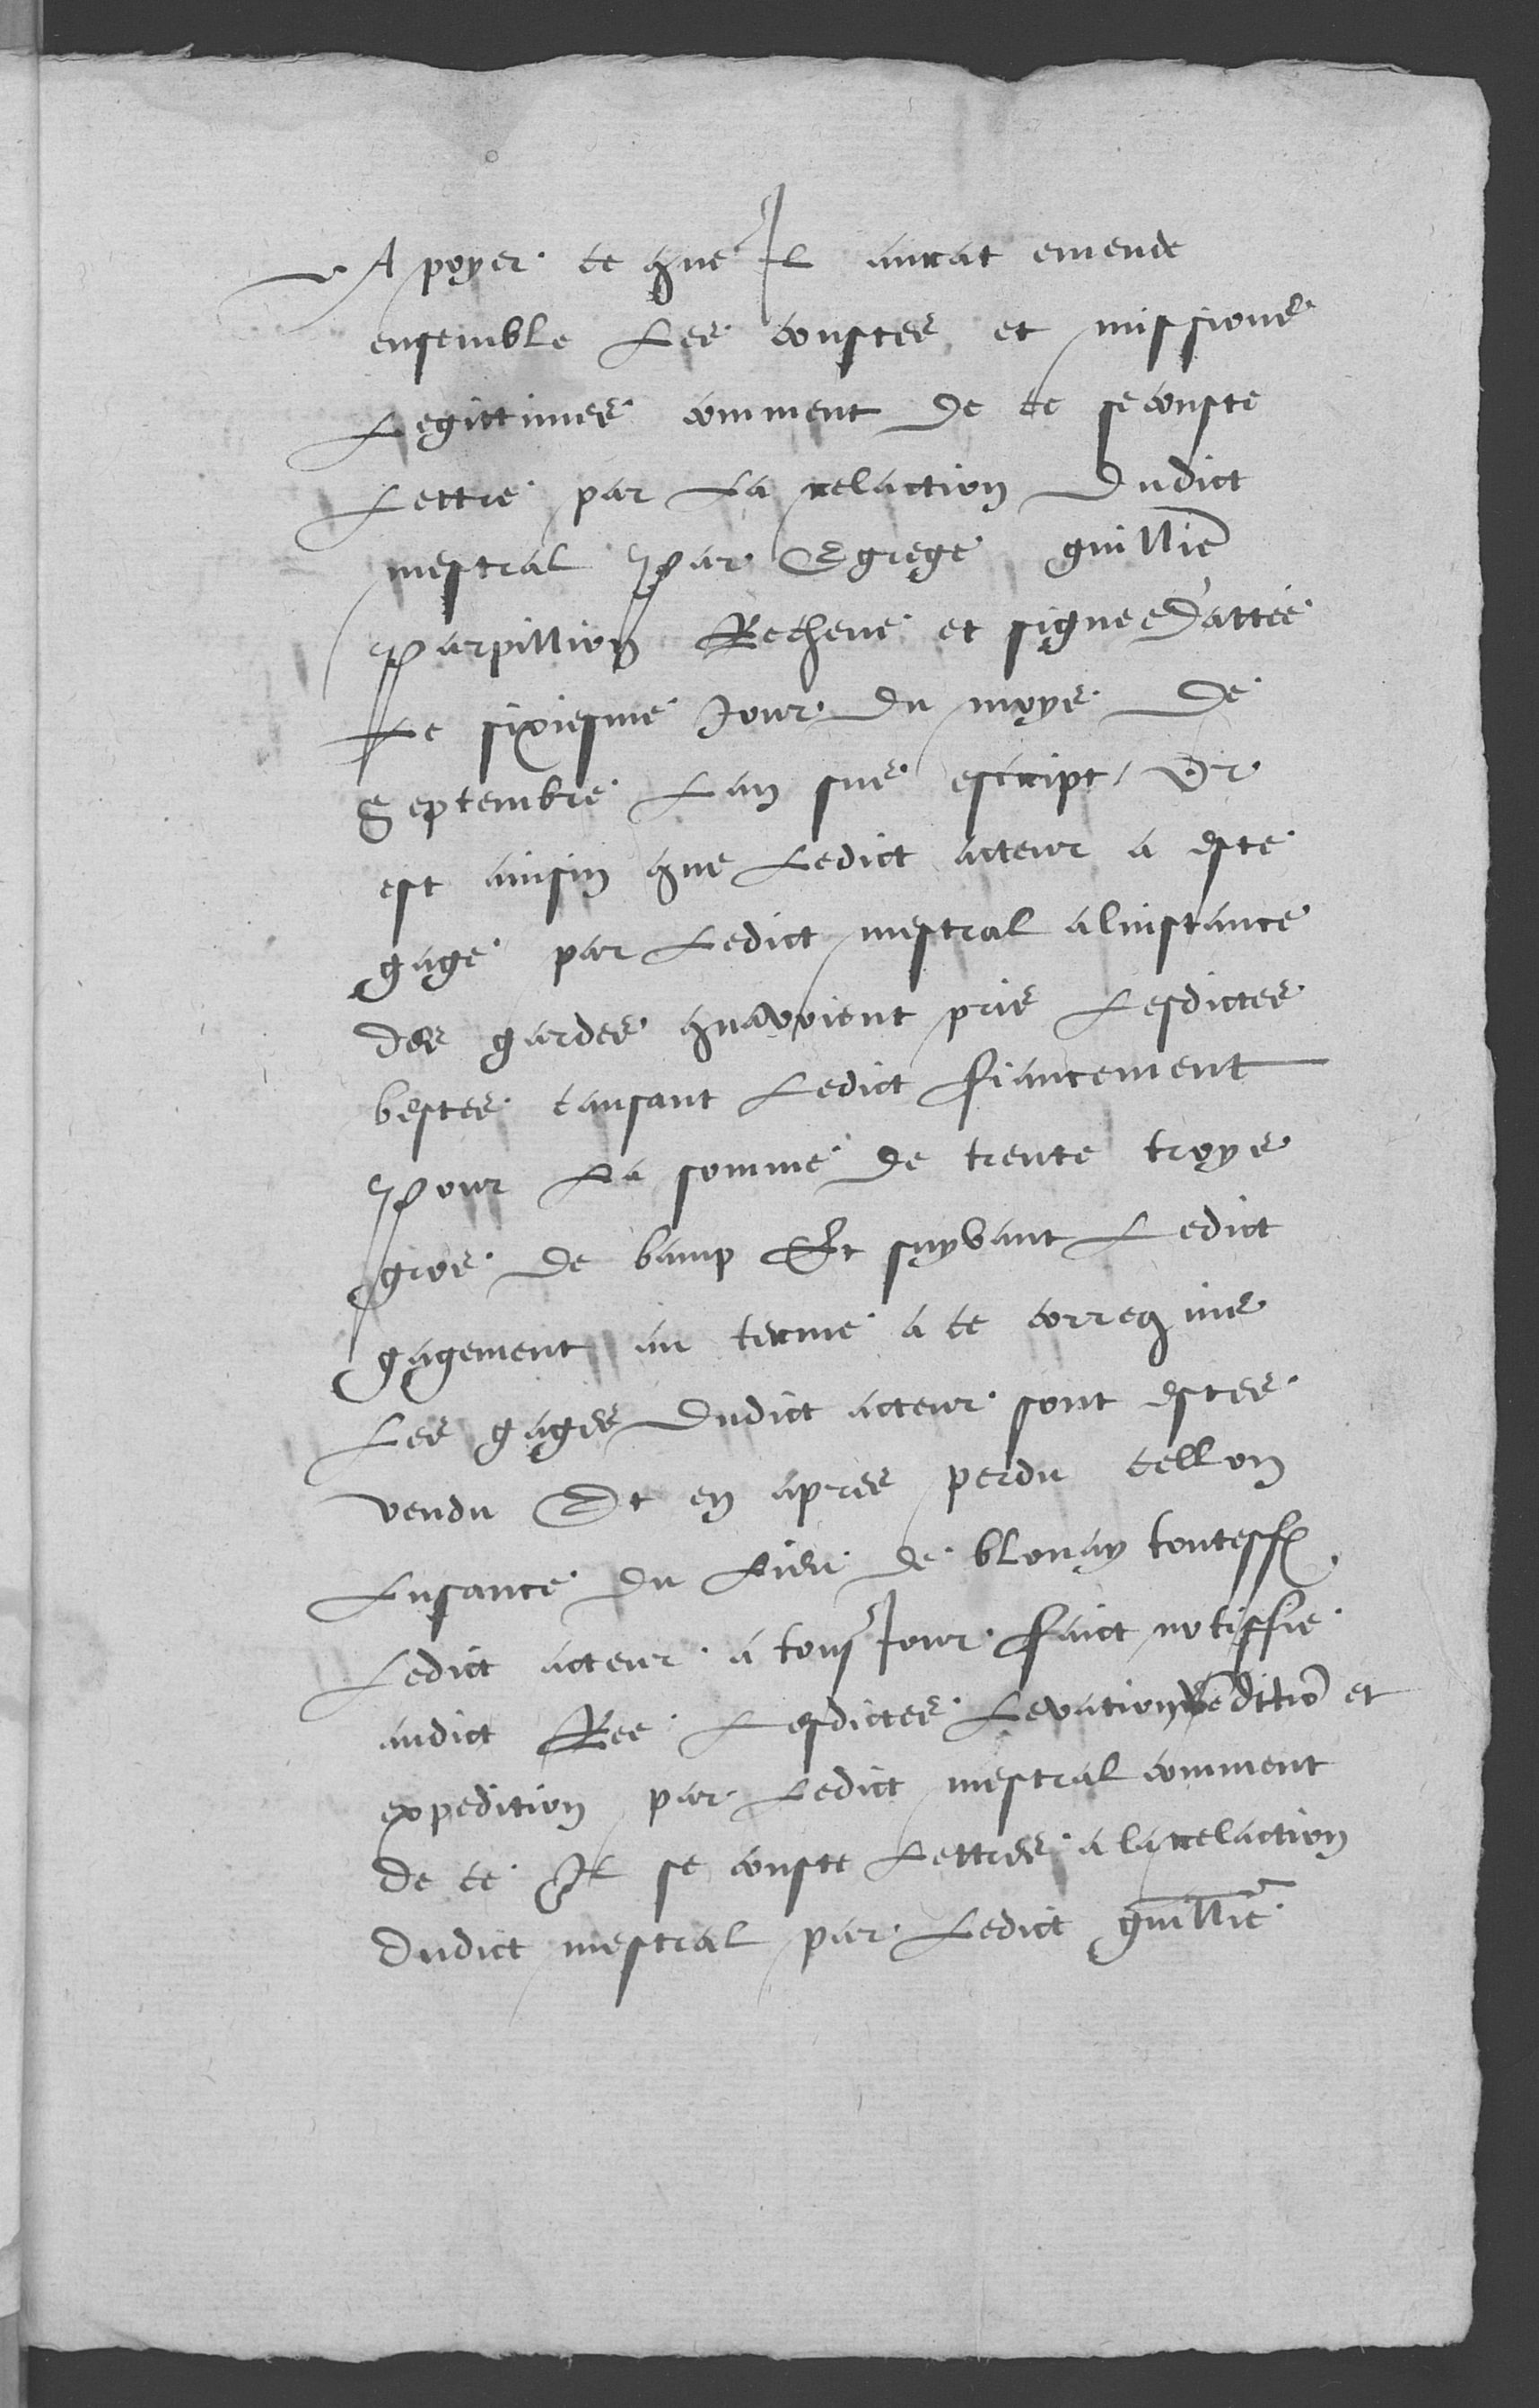 A poyer ce que Il aurat emende
ensemble Les coustes et missions
Legittimes comment de ce se conste
Lettre par La relaction Dudict
mestral Par Egrege guillie
Parpillion Recheue et signee Dattee
Le sixiesme Jour du moys De
Septembre Lan sus escript / Or
est ainsin que Ledict acteur a este
gage par Ledict mestral alinstance
des gardes quavoient pris Lesdictes
bestes causant Ledict fiancement
Pour La somme de trente troys
gros de bamp Et suyvant Ledict
gagement au terme a ce correquis
Les gages Dudict acteur sont estes
vendu Et en apres perdu cellon
Lusance du Lieu de blonay toutesf
Ledict acteur a tous Jour faict notiffie
audict Ree Lesdictes Levation venditio et
expedition par Ledict mestral comment
de ce Il se conste Lettres a la relaction
Dudict mestral par Ledict guillie